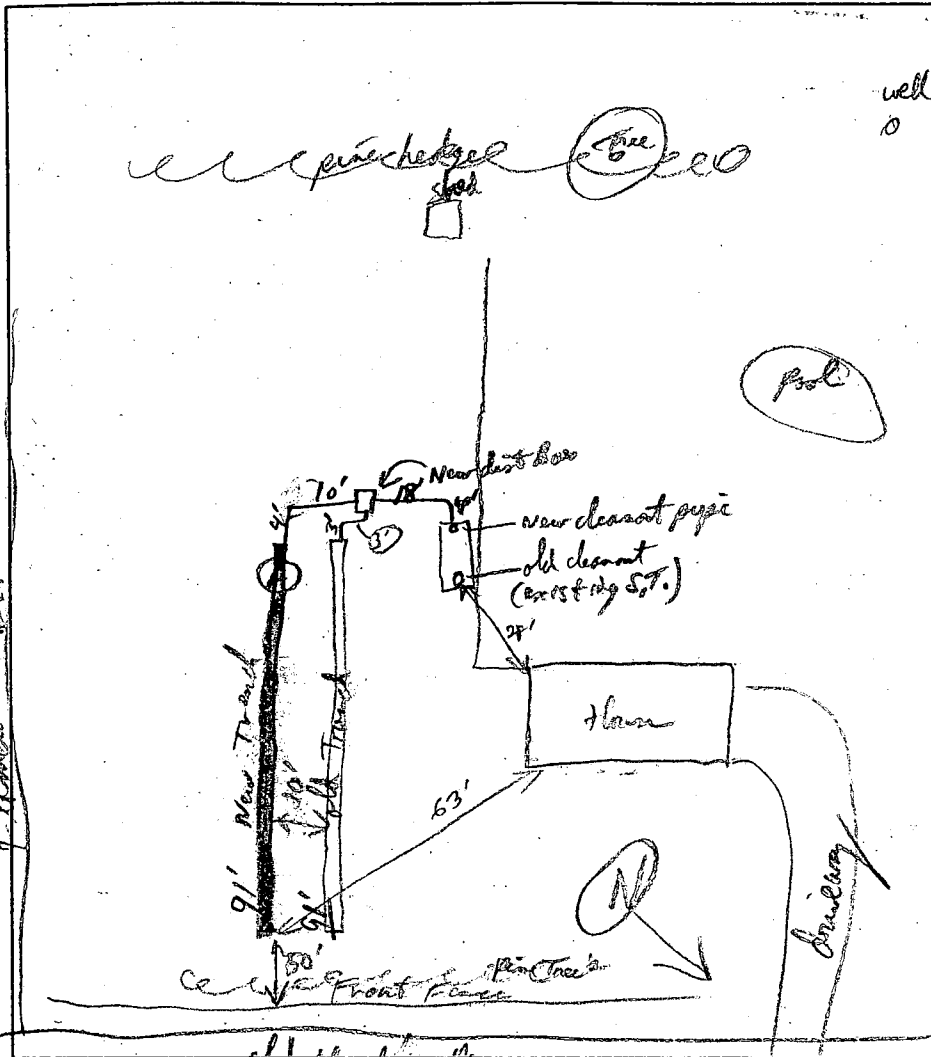 well
pine hedge
Tree
shed
Pool
New dist Box
10'
18'
4'
3'
New cleanout pipe
old cleanout
(existing S.T.)
28'
House
New Trench
old Trench
10'
63'
91'
91'
N
Driveway
50'
pine Tree's
Front Fence